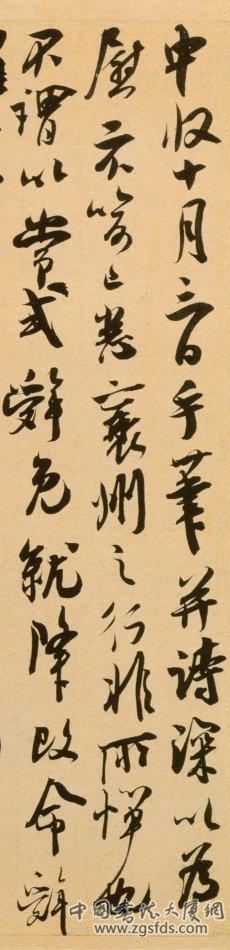 中收十月三日手筆并詩深以為
慰示喻已悉襄州之行非所憚
不謂以嘗辭免就降改命辭
中國書法大廈網
www.zgsfds.com